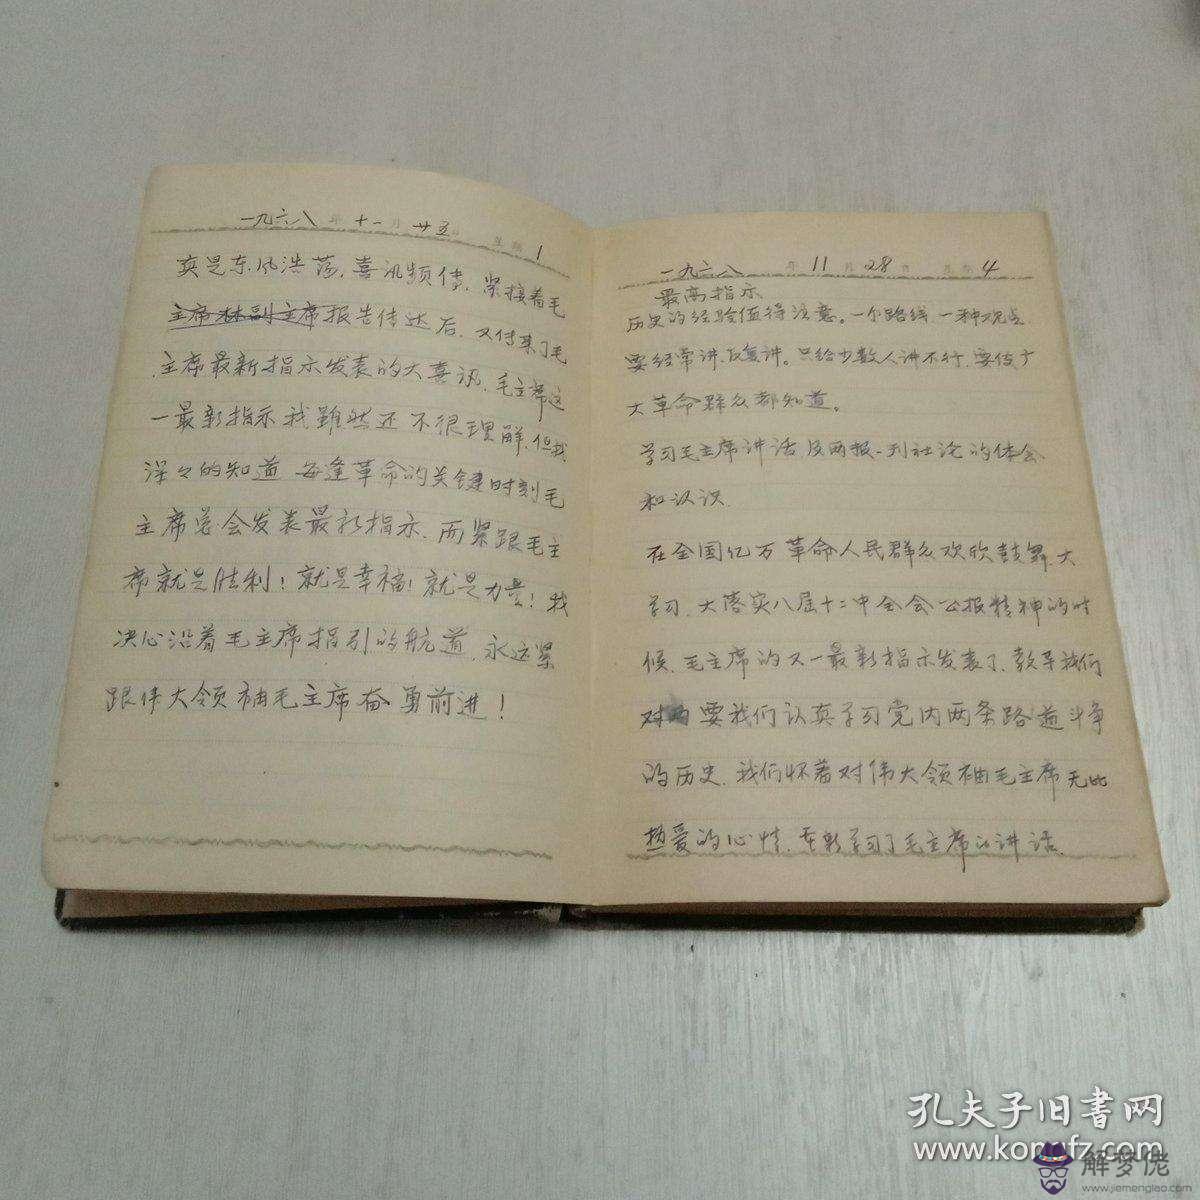 一九六八 年 十一 月 廿五 日 星期 1
真是东风浩荡，喜讯频传，紧接着毛
主席林副主席报告传达后，又传来了毛
主席最新指示发表的大喜讯，毛主席这
一最新指示我虽然还不很理解，但我
深々的知道 每逢革命的关键时刻毛
主席总会发表最新指示，而紧跟毛主
席就是胜利！就是幸福！就是力量！我
决心沿着毛主席指引的航道，永远紧
跟伟大领袖毛主席奋勇前进！
一九六八 年 11 月 28 日 星期 4
最高指示
历史的经验值得注意。一个路线，一种观点
要经常讲，反复讲。只给少数人讲不行，要使广
大革命群众都知道。
学习毛主席讲话及两报一刊社论的体会
和认识
在全国亿万革命人民群众欢欣鼓舞大
学习，大落实八届十二中全会公报精神的时
候，毛主席的又一最新指示发表了，教导我们
对 要我们认真学习党内两条路道斗争
的历史，我们怀着对伟大领袖毛主席无比
热爱的心情， 学习了毛主席的讲话，
孔夫子旧书网
www.kongfz.com
解梦佬
www.jiemenglao.com